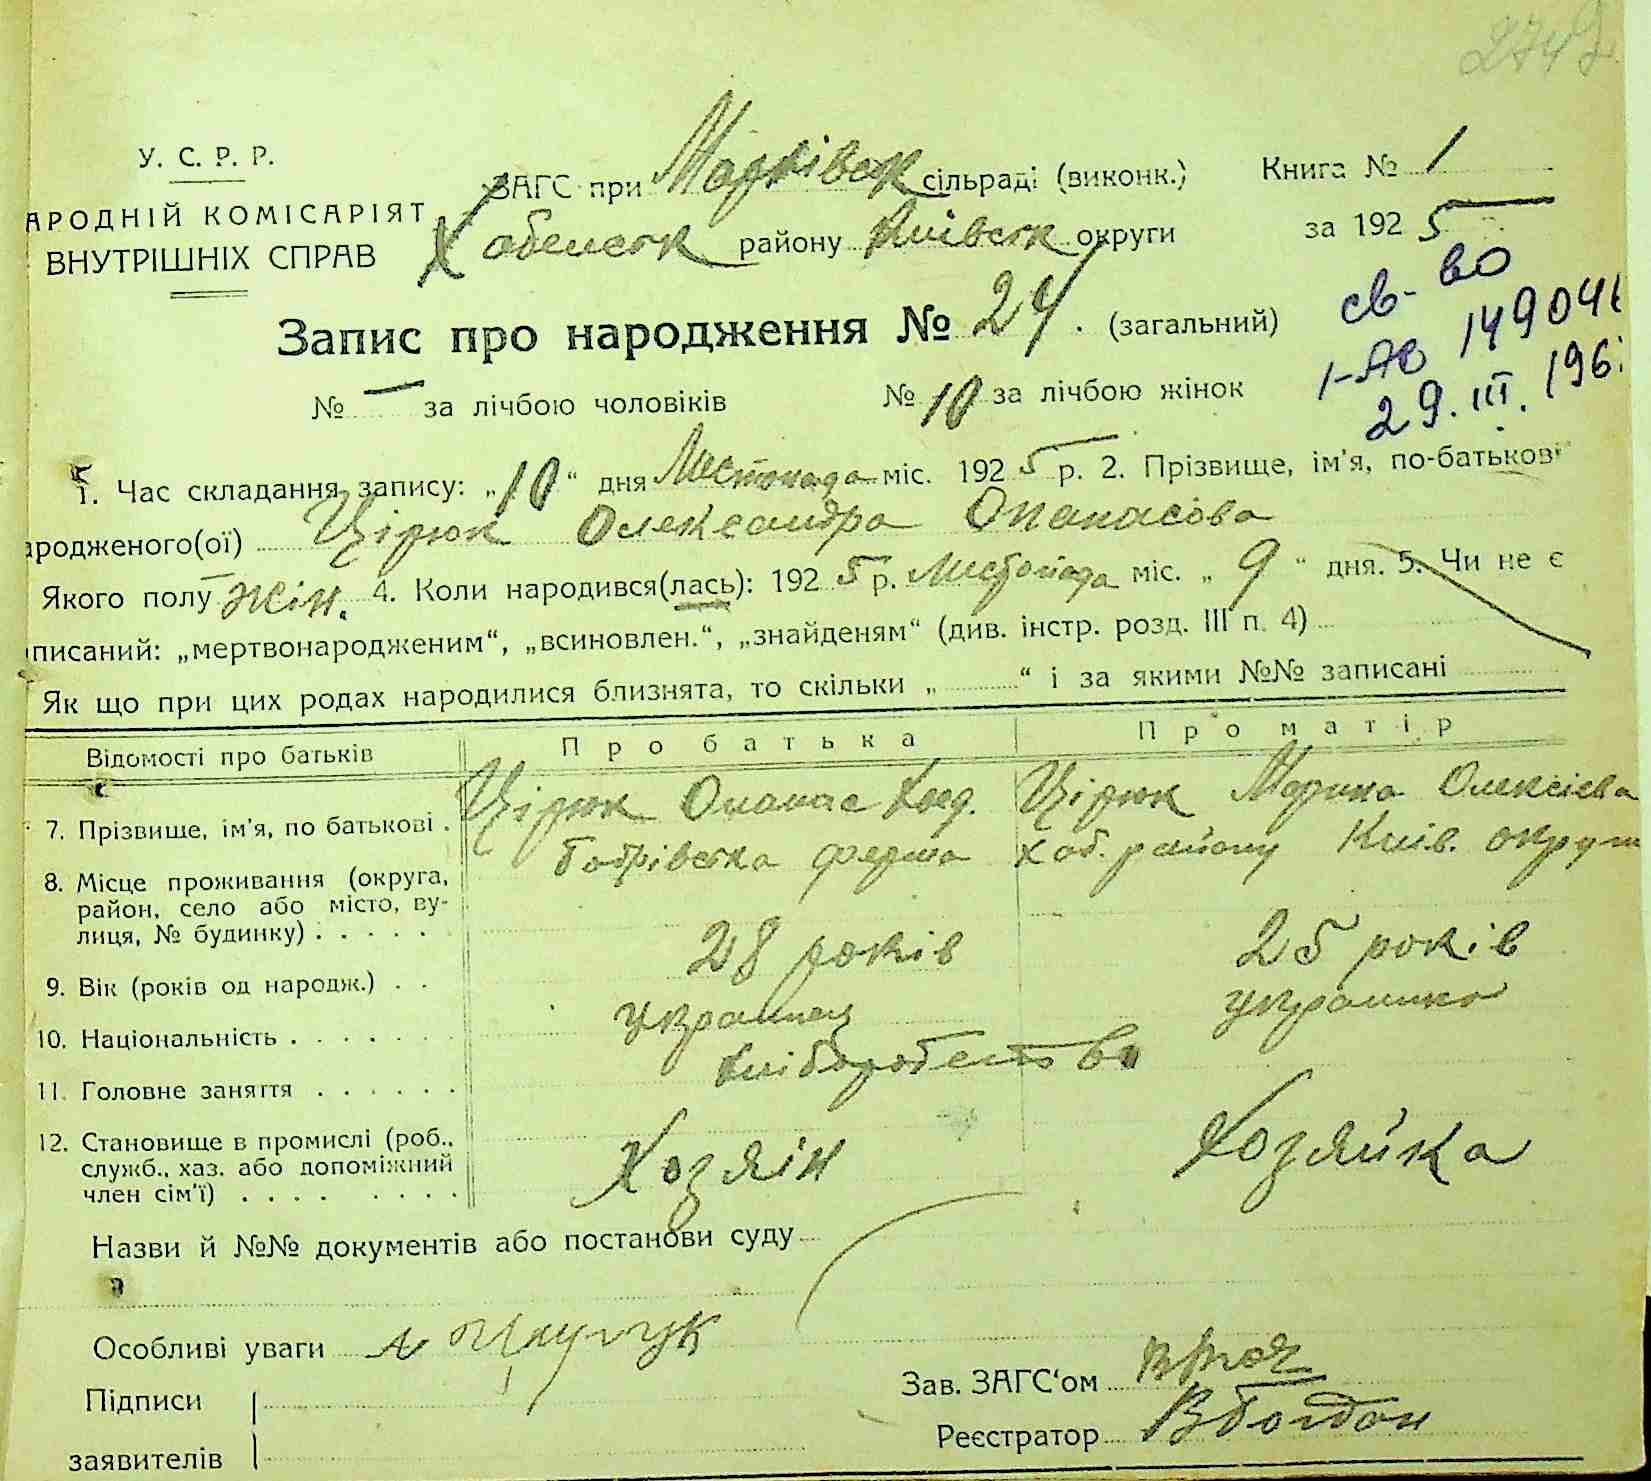 274
У. С. Р. Р.
АРОДНІЙ КОМІСАРІЯТ
ВНУТРІШНІХ СПРАВ
ЗАГС при Марківськ сільраді (виконк.)
Хабенськ району Київськ округи
Книга № 1
за 1925
Запис про народження № 24. (загальний)
№ — за лічбою чоловіків № 10 за лічбою жінок
св-во
1-АЮ 149041
29. III. 196
1. Час складання запису: „10“ дня Листопада міс. 1925 р. 2. Прізвище, ім'я, по-батькові
ародженого(ої) Цірюк Олександра Опанасова
Якого полу жін. 4. Коли народився(лась): 1925 р. Листопада міс. „9“ дня. 5. Чи не є
писаний: „мертвонародженим“, „всиновлен.“, „знайденям“ (див. інстр. розд. III п. 4)
Як що при цих родах народилися близнята, то скільки „ “ і за якими №№ записані
Відомості про батьків Про батька Про матір
7. Прізвище, ім'я, по батькові . Цірюк Опанас Цірюк Марина Олексієва
8. Місце проживання (округа, район, село або місто, вулиця, № будинку) . . . . . ферма Хаб. району Київ. округи
9. Вік (років од народж.) . . 28 років 25 років
10. Національність . . . . . . . українец українка
11. Головне заняття . . . . . . хліборобство
12. Становище в промислі (роб., Хозяін Хозяйка
служб., хаз. або допоміжний
член сім'ї) . . . . . . . .
Назви й №№ документів або постанови суду
Особливі уваги
Підписи
заявителів
Зав. ЗАГС'ом
Реєстратор ВБогдан